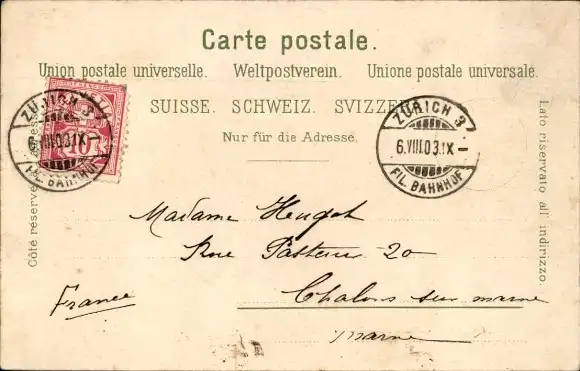 Carte postale.
Union postale universelle. Weltpostverein. Unione postale universale.
SUISSE. SCHWEIZ. SVIZZE
Nur für die Adresse.
Côté réservé
Lato riservato all' indirizzo.
ZÜRICH 3
6.VIII.03.IX–
FIL. BAHNHOF
10
ZÜRICH 3
6.VIII.03.IX–
FIL. BAHNHOF
Madame
Rue Pasteur 20
France
Chalons sur marne
marne